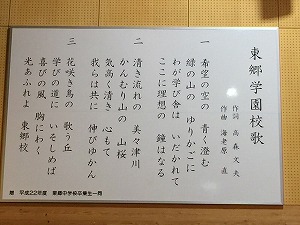 東郷学園校歌
作詞 高森文夫
作曲 海老原 直
一 希望の空の 青く澄む
緑の山の ゆりかごに
わが学び舎は いだかれて
ここに理想の 鐘はなる
二 清き流れの 美々津川
かんむり山の 山桜
気高く清き 心もて
我らは共に 伸びゆかん
三 花咲き鳥の 歌う丘
学びの道に いそしめば
喜びの風 胸にわく
光あふれよ 東郷校
贈 平成22年度 東郷中学校卒業生一同